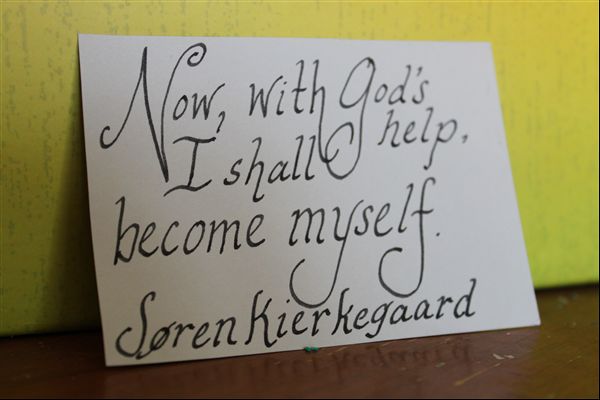 Now, with God's help,
I shall
become myself.
Søren Kierkegaard